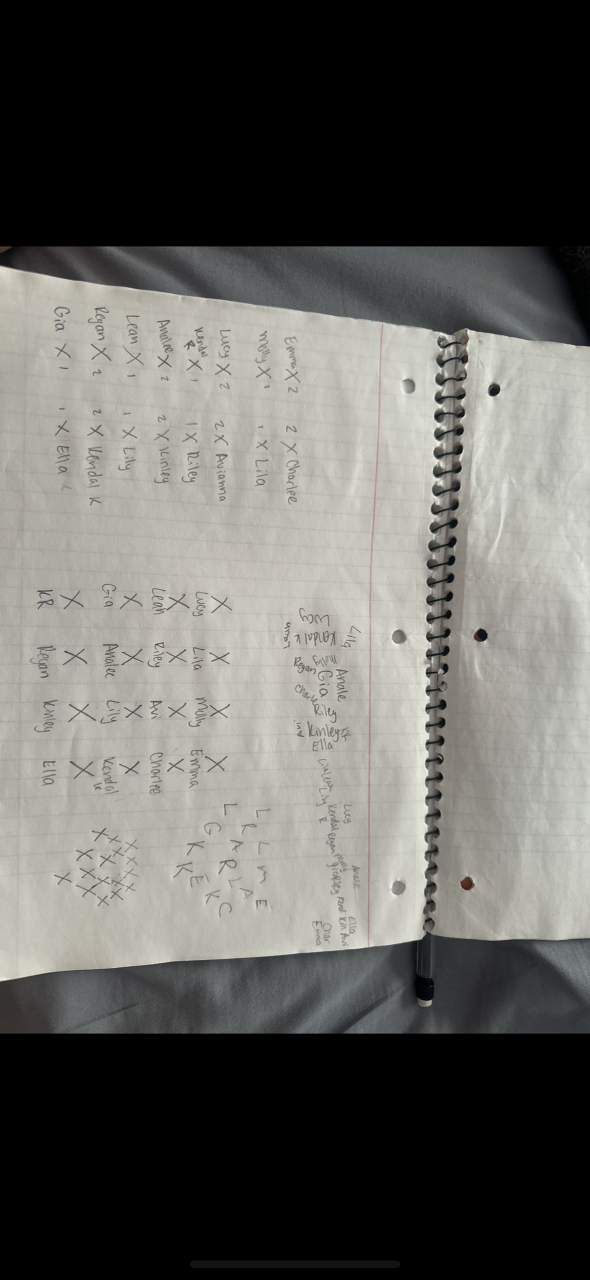 Emma X 2 2 X Charlee
Molly X 1 1 X Lila
Lucy X 2 2 X Avianna
Kendal R X 1 1 X Riley
Analee X 2 2 X Kinley
Leah X 1 1 X Lily
Regan X 2 2 X Kendal K
Gia X 1 1 X Ella
Lily
Anale
Lucy Kendal K Gia Riley Kinley Ella
Regan Avi
Lucy Anale Ella
Avi
Char
Emma
X X X X
Lucy Lila Molly Emma
X X X X
Leah Riley Avi Charlee
X X X X
Gia Analee Lily Kendal K
X X X X
KR Regan Kinley Ella
L L M E
L R A
A R L C
G K E K
K
X X X X
X X X X
X X X X
X